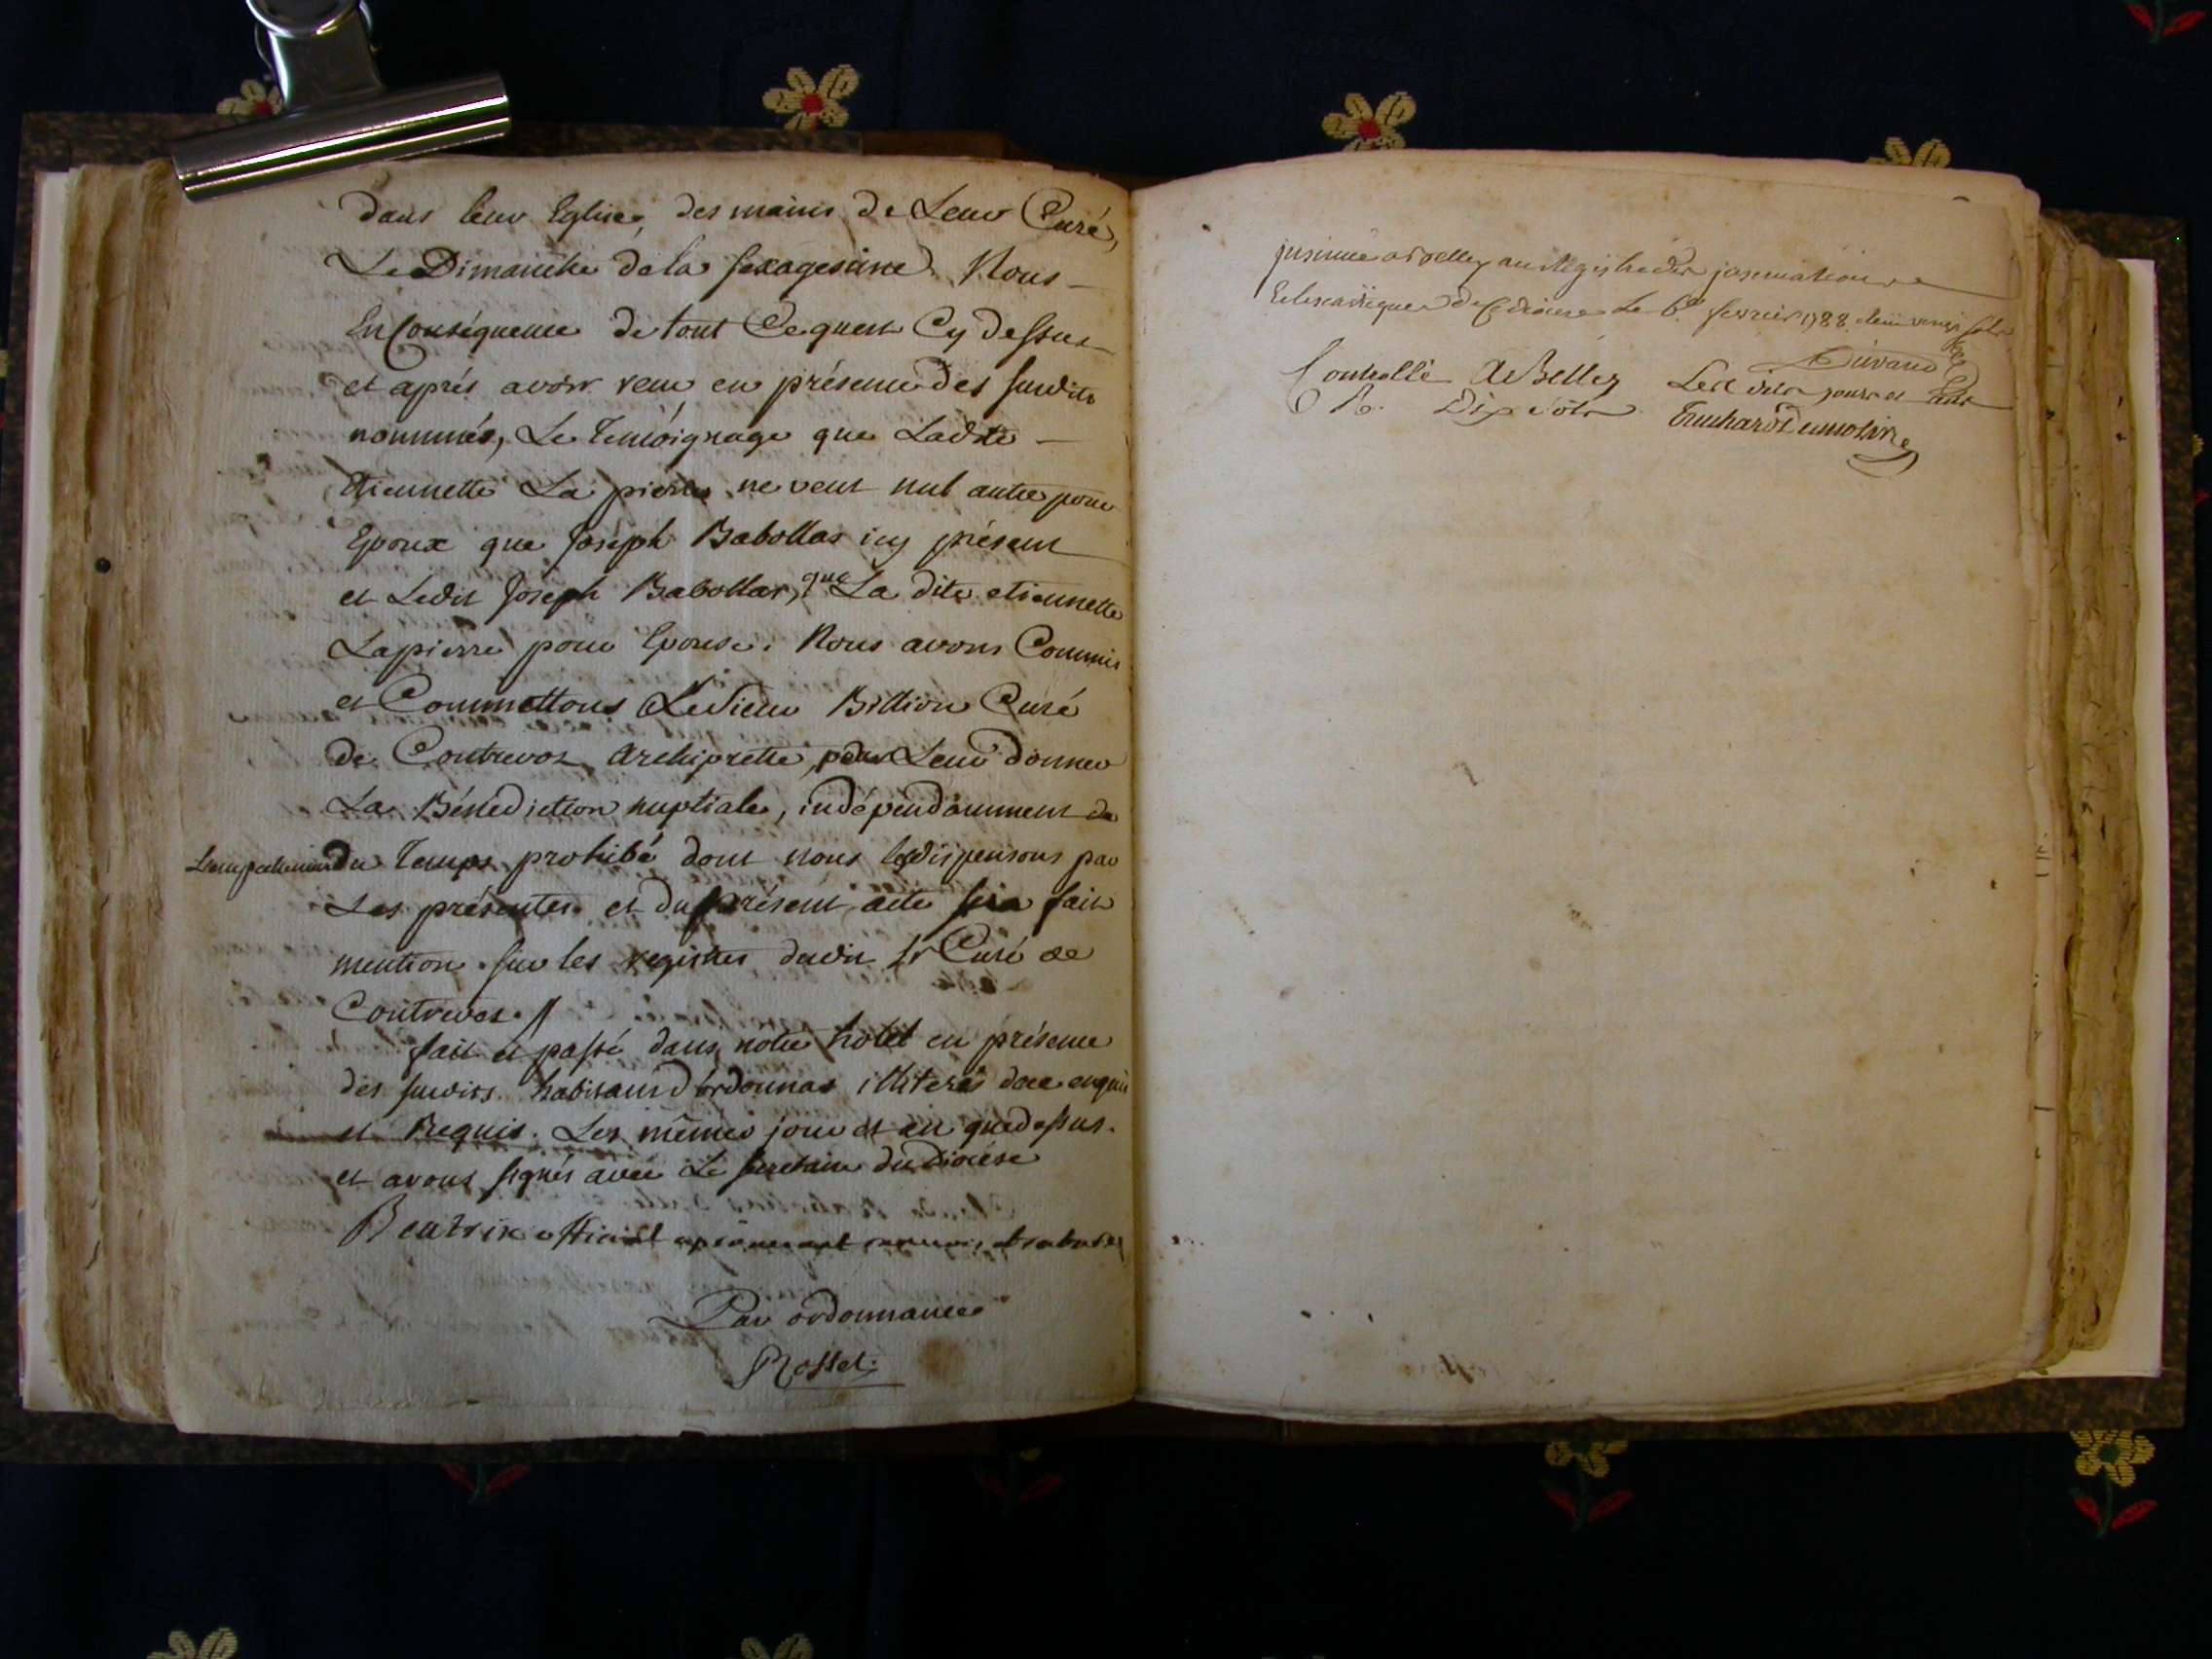 dans leur Eglise, des mains de Leur Curé,
Le Dimanche de la sexagesime. Nous -
En Conséquence de tout Ce quest Cy dessus
et aprés avoir reçu en présence des susdits
nommés, Le Temóignage que Ladite -
Etiennette La pierre ne veut nul autre pour
Epoux que Joseph Babollas icy présent
et Ledit Joseph Babollas, que La dite etiennette
Lapierre pour Epouse. Nous avons Commis
et Commettons Le Sieur Billion Curé
de Contrevoz Archipretre, pour Leur donner
La Bénédiction nuptiale, indépendamment de
L'empechement du Temps prohibé dont nous les dispensons par
Les présentes et du présent acte sera fait
mention sur les registres dudit Sr Curé de
Contrevos.
fait et passé dans notre hotel en présence
des susdits habitans d'ordonnas illiterés de ce enquis
et Requis. Les mêmes jour et an que dessus.
et avons signés avec Le secretaire du Diocése
Beatrix official
Par ordonnance
Rosset.
insinué a Belley au Régistre des insinuations
Eclesiastiques de Ce diocese Le 6e fevrier 1788 sols
Durand
Controllé A Belley Les dits jour et an
R. Dix sols Truchard Dumolin